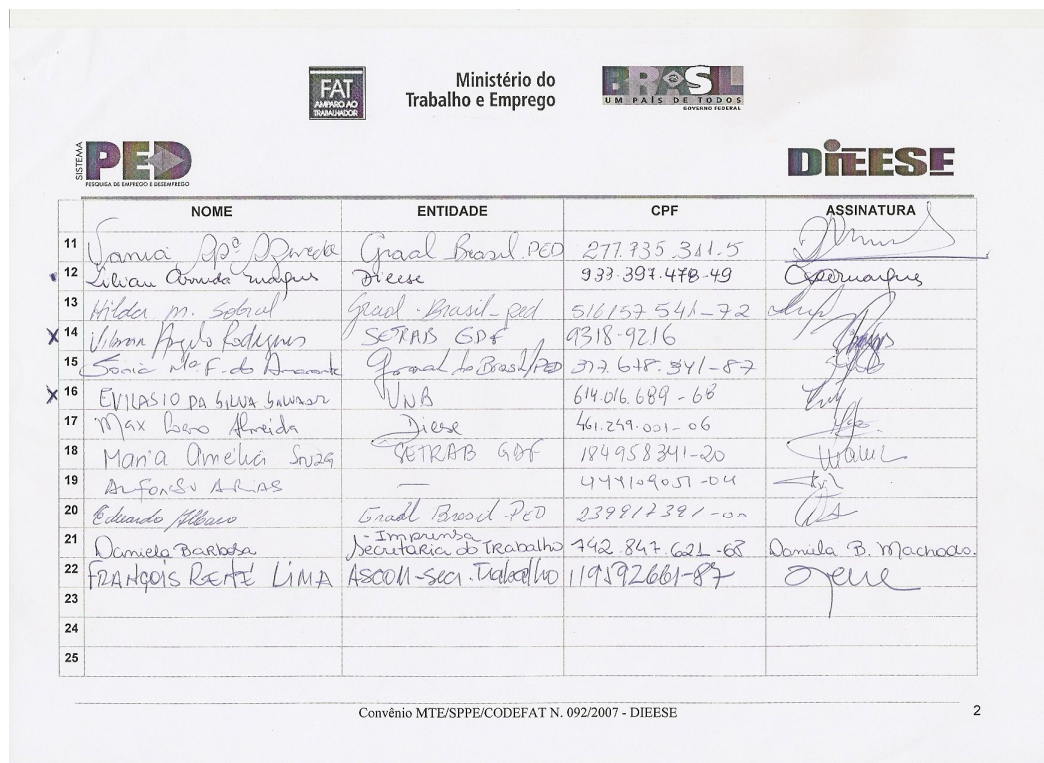 FAT
AMPARO AO
TRABALHADOR
Ministério do
Trabalho e Emprego
BRASIL
UM PAÍS DE TODOS
GOVERNO FEDERAL
SISTEMA
PED
PESQUISA DE EMPREGO E DESEMPREGO
DIEESE
NOME ENTIDADE CPF ASSINATURA
11 Vania Apª Graal Brasil PED 277.735.311.5
12 Lilian Arruda Marques Dieese 933.397.478-49
13 Hilda M. Sobral Graal - Brasil - ped 516157541-72
X 14 Angelo Rodrigues SETRAB GDF 9318-9216
15 Sonia Mª F. do Amarante do Brasil/PED 377.678.341-87
X 16 EVILASIO DA SILVA SALVADOR UNB 614.016.689-68
17 Max Almeida Dieese 461.249.001-06
18 Maria Amélia Souza SETRAB GDF 184958341-20
19 ALFONSO ARIAS —
20 Eduardo Graal Brasil PED
21 Daniela Barbosa - Imprensa Secretaria do Trabalho 742.847.621-68 Daniela B. Machado.
22 FRANÇOIS RENÉ LIMA ASCOM-Secr. Trabalho 119592661-87 Rene
23
24
25
Convênio MTE/SPPE/CODEFAT N. 092/2007 - DIEESE 2